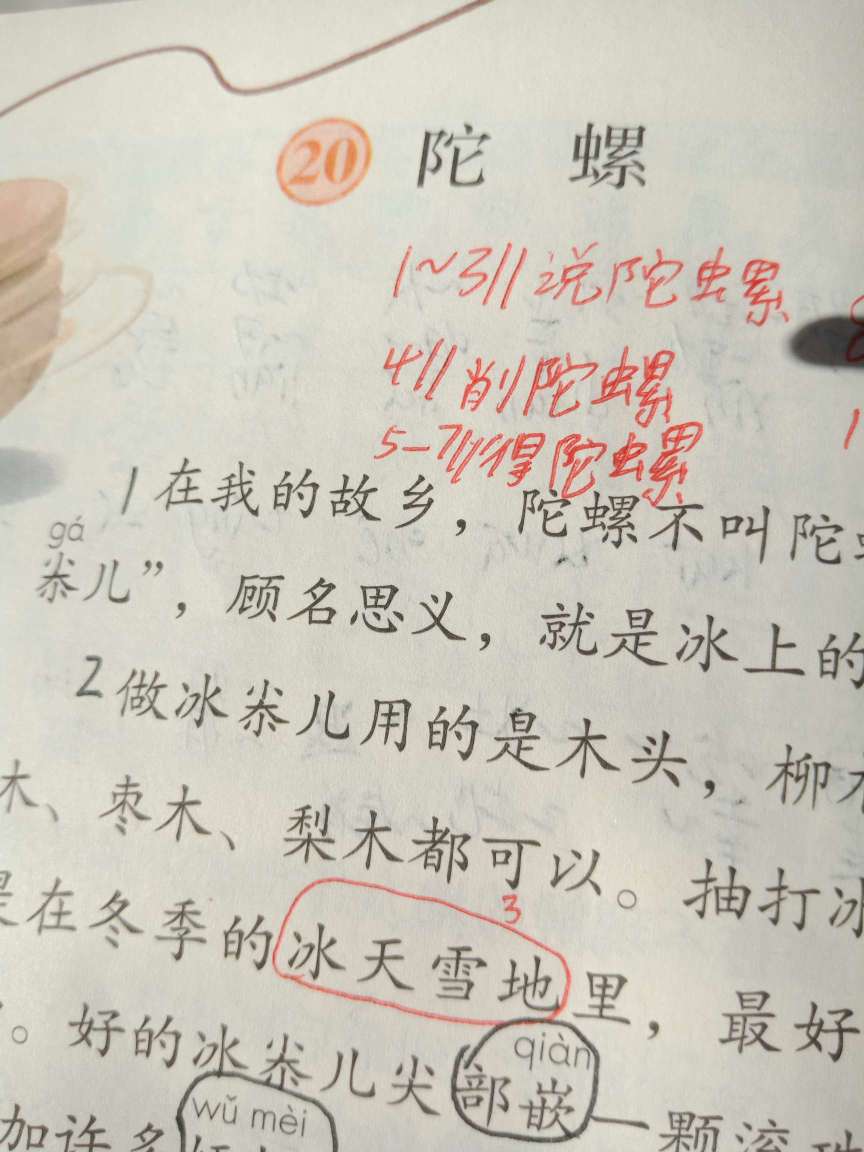 20 陀 螺
1~3// 说陀螺
4// 削陀螺
5-7// 得陀螺
1 在我的故乡，陀螺不叫陀
gá
尜儿”，顾名思义，就是冰上的
2 做冰尜儿用的是木头，柳木
木、枣木、梨木都可以。抽打冰
3
是在冬季的冰天雪地里，最好
qiàn
。好的冰尜儿尖部嵌一颗滚
wǔ mèi
加许多